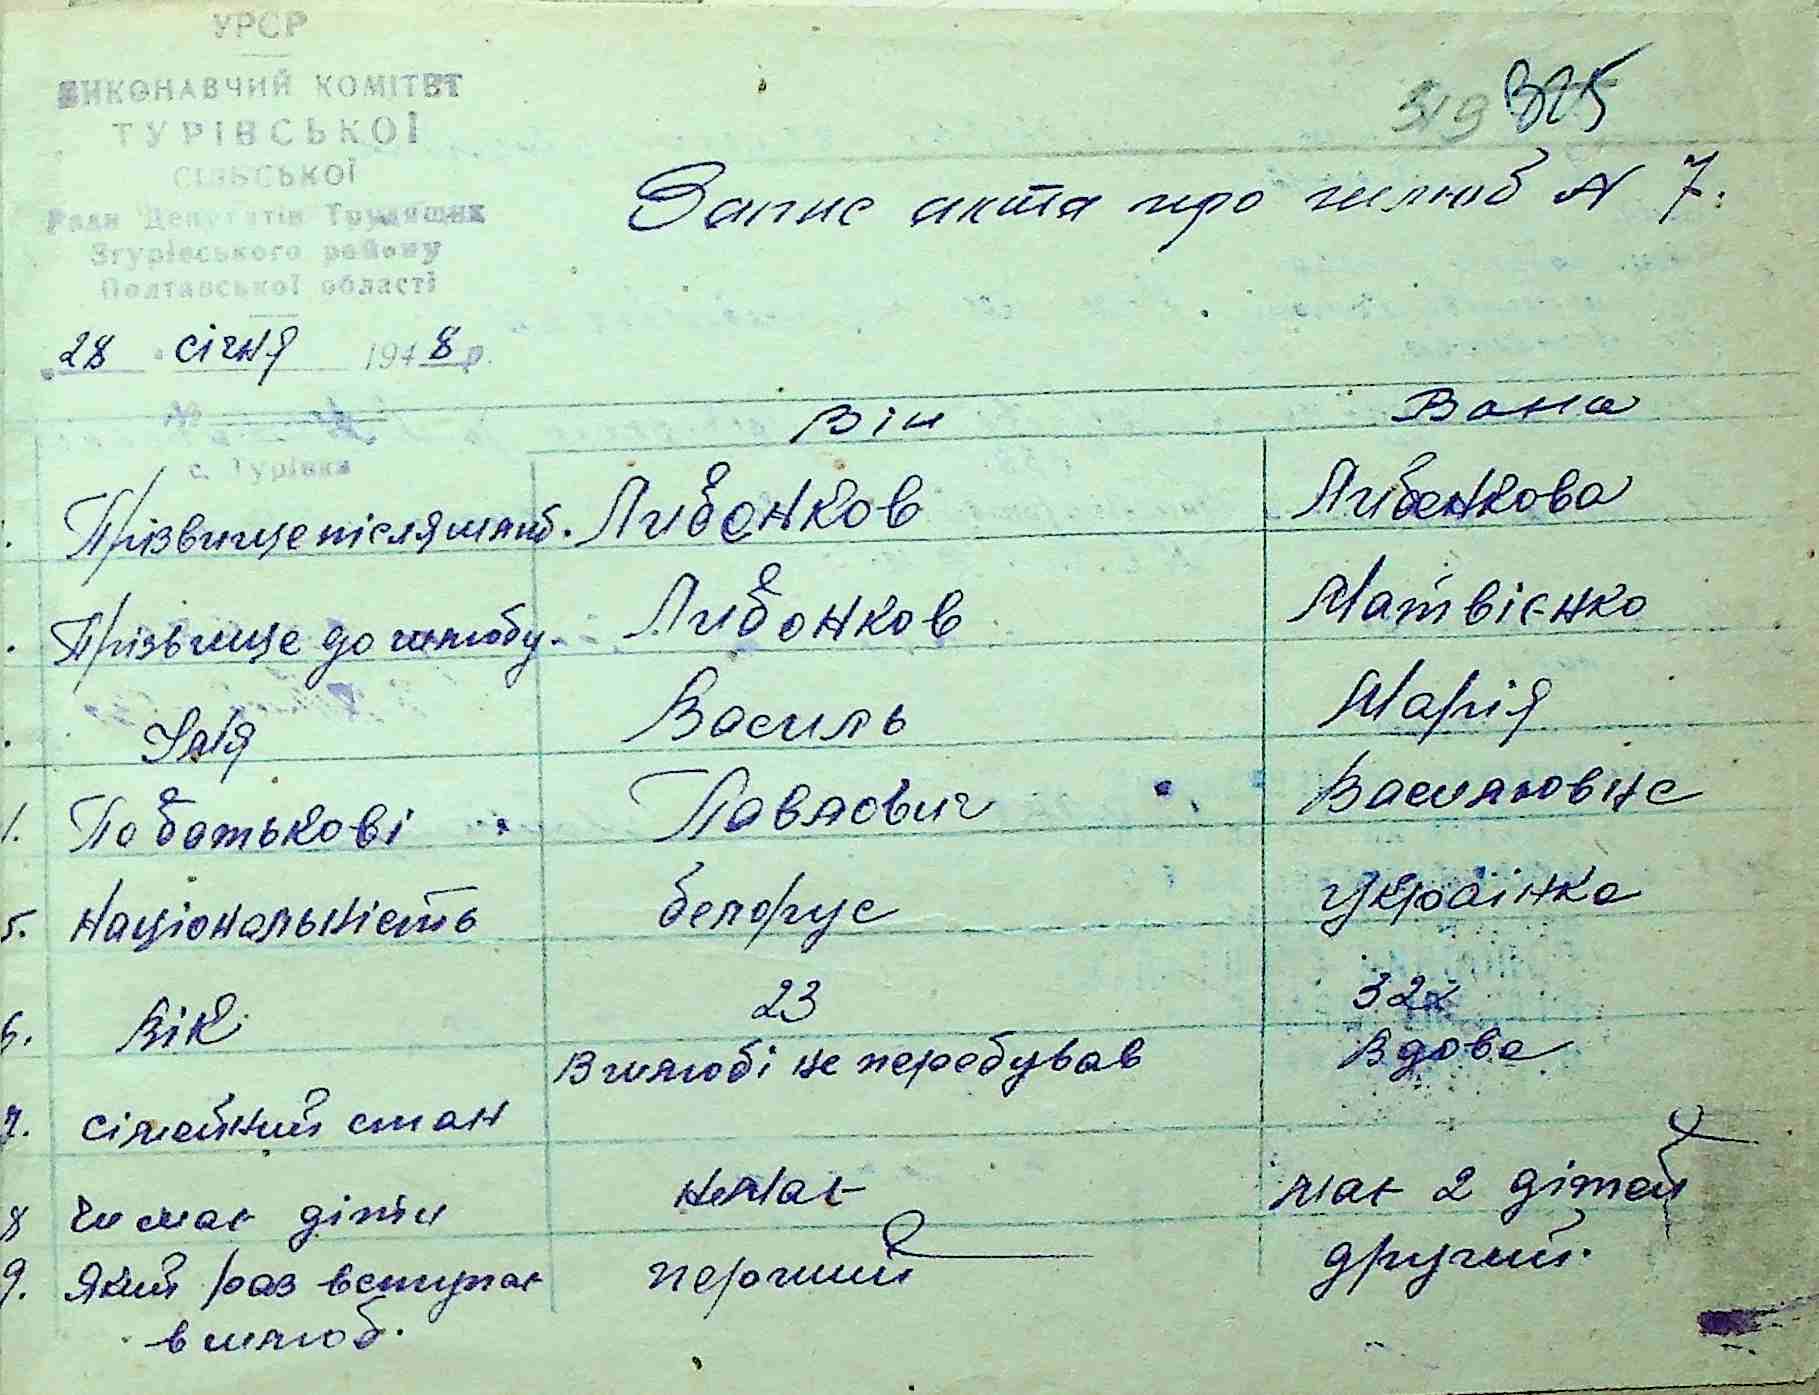 УРСР
ВИКОНАВЧИЙ КОМІТЕТ
ТУРІВСЬКОЇ
СІЛЬСЬКОЇ
Ради Депутатів Трудящих
Згурівського району
Полтавської області
28 січня 1948 р.
№
с. Турівка
319 325
Запис акта про шлюб N 7.
Він Вона
Прізвище після шлюб. Либонков Либонкова
Прізвище до шлюбу. Либонков Матвієнко
Імя Василь Марія
По батькові Павлович Василювне
5. Національність белорус Українка
6. Вік 23 32
В шлюбі не перебував Вдова
7. Сімейний стан
8 Чи має діти немає має 2 дітей
9. Який раз вступає перший другий.
в шлюб.